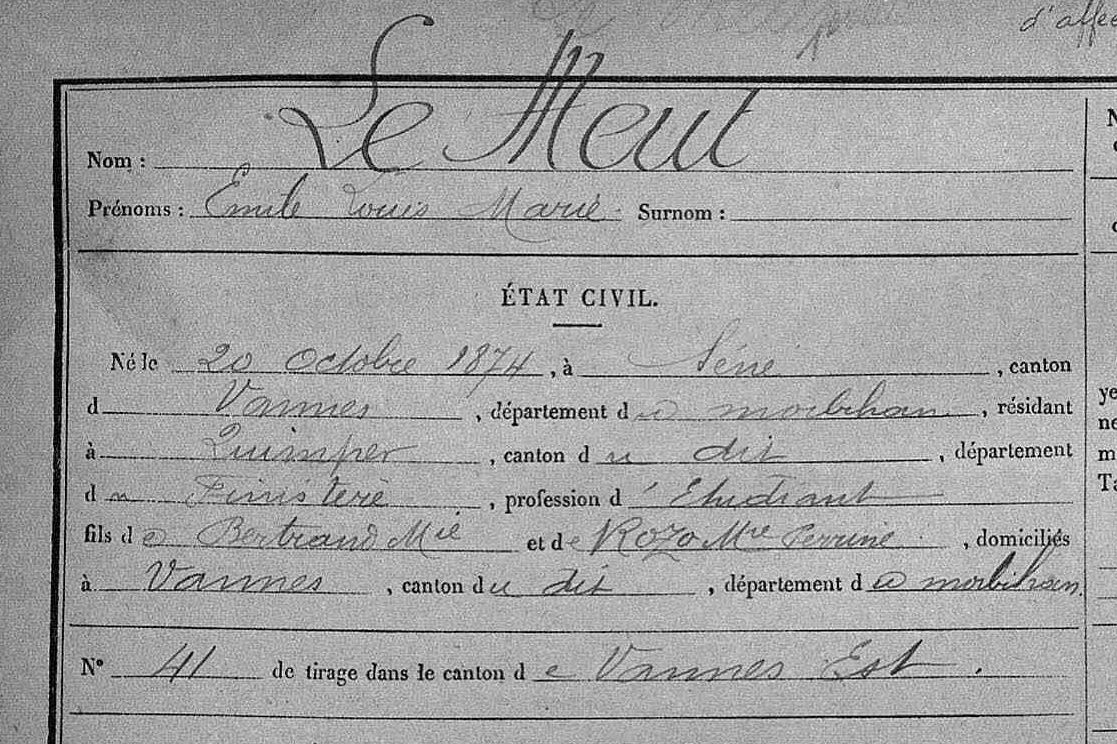 d'affec
Le Meut
Nom :
Prénoms : Emile Louis Marie Surnom :
ÉTAT CIVIL.
Né le 20 octobre 1874, à Séné, canton
d Vannes, département du morbihan, résidant
à Quimper, canton du dit, département
du Finistère, profession d'Etudiant
fils de Bertrand Mie et de Rozo Mie Perrine, domiciliés
à Vannes, canton du dit, département du morbihan
N° 41 de tirage dans le canton de Vannes Est.